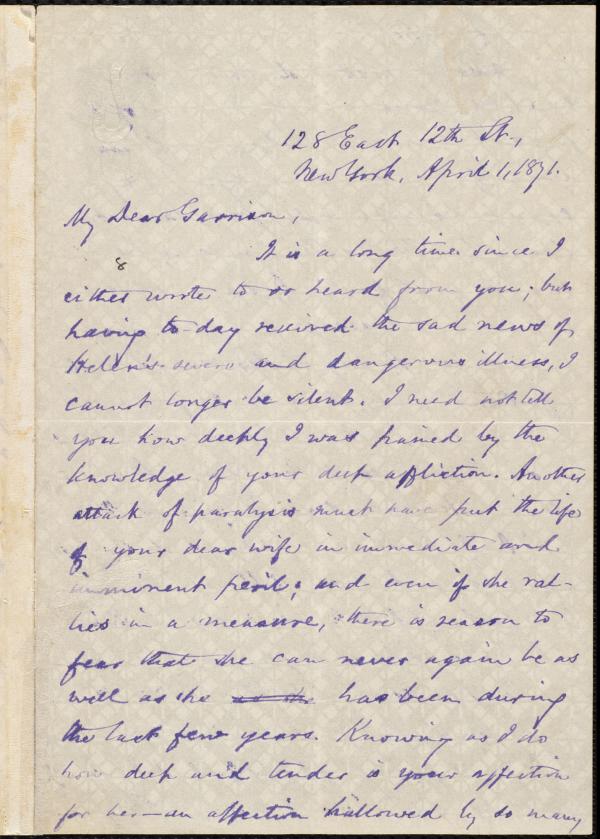 128 East 12th St.,
New York, April 1, 1871.
My Dear Garrison,
It is a long time since I
8
either wrote to or heard from you; but
having to-day received the sad news of
Helen's severe and dangerous illness, I
cannot longer be silent. I need not tell
you how deeply I was pained by the
knowledge of your deep affliction. Another
attack of paralysis must have put the life
of your dear wife in immediate and
imminent peril; and even if she ral-
lies in a measure, there is reason to
fear that she can never again be as
well as she as she has been during
the last few years. Knowing as I do
how deep and tender is your affection
for her—an affection hallowed by so many